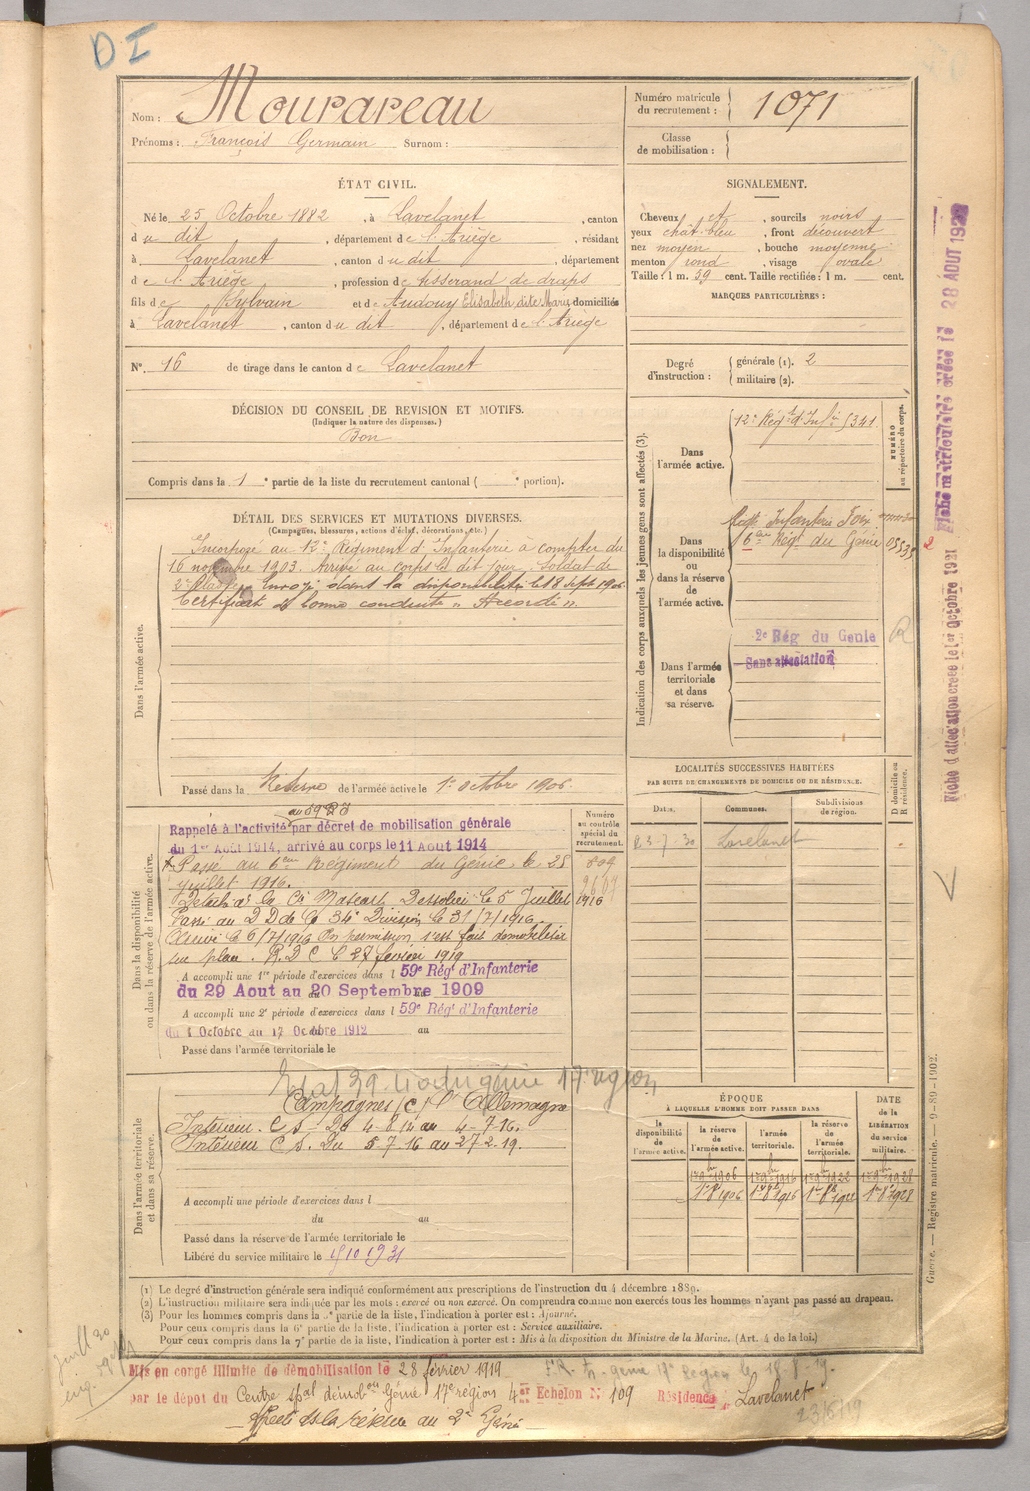 D I
Nom : Mourareau
Prénoms : François Germain Surnom :
Numéro matricule du recrutement : 1071
Classe de mobilisation :
ÉTAT CIVIL.
Né le 25 Octobre 1882, à Lavelanet, canton
du dit, département de l'Ariège, résidant
à Lavelanet, canton du dit, département
de l'Ariège, profession de tisserand de draps
fils de Sylvain et de Audouy Elisabeth dite Marie domiciliés
à Lavelanet, canton du dit, département de l'Ariège
N° 16 de tirage dans le canton de Lavelanet
SIGNALEMENT.
Cheveux et, sourcils noirs
yeux chat. bleu, front découvert
nez moyen, bouche moyenne
menton rond, visage ovale
Taille : 1 m. 59 cent. Taille rectifiée : 1 m. cent.
MARQUES PARTICULIÈRES :
Degré d'instruction : générale (1). 2
militaire (2).
DÉCISION DU CONSEIL DE REVISION ET MOTIFS.
(Indiquer la nature des dispenses.)
Bon
Compris dans la 1e partie de la liste du recrutement cantonal ( e portion).
DÉTAIL DES SERVICES ET MUTATIONS DIVERSES.
(Campagnes, blessures, actions d'éclat, décorations, etc.)
Dans l'armée active.
Incorporé au 12e Régiment d'Infanterie à compter du
16 novembre 1903. Arrivé au corps le dit jour. Soldat de
2e classe. Envoyé dans la disponibilité le 18 Septe 1906
Certificat de bonne conduite " Accordé ".
Passé dans la Réserve de l'armée active le 1er Octobre 1906.
Indication des corps auxquels les jeunes gens sont affectés (3).
NUMÉRO au répertoire du corps.
Dans l'armée active.
12e Régt d'Infie 5341
Dans la disponibilité ou dans la réserve de l'armée active.
Infanterie Foix
6eme Rég. du Génie 05535
2
Dans l'armée territoriale et dans sa réserve.
2e Rég du Genie R
Sans affectation
LOCALITÉS SUCCESSIVES HABITÉES
PAR SUITE DE CHANGEMENTS DE DOMICILE OU DE RÉSIDENCE.
D domicile ou R résidence.
Dates. Communes. Subdivisions de région.
23-7-30 Lavelanet
Dans la disponibilité ou dans la réserve de l'armée active.
Numéro au contrôle spécial du recrutement.
au 59e RI
Rappelé à l'activité par décret de mobilisation générale
du 1er Août 1914, arrivé au corps le 11 Aout 1914
Passé au 6eme Régiment du Génie le 25
juillet 1916.
Détaché à la Cie Dessoliei le 5 Juillet 1916
Passé au D D de la 34e Division le 31/7/1916
le 6/7/1916 En permission s'est fait démobiliser
sur place. R.D.C le 27 février 1919
A accompli une 1re période d'exercices dans l 59e Régt d'Infanterie
du 29 Aout au 20 Septembre 1909
A accompli une 2e période d'exercices dans l 59e Régt d'Infanterie
du 1 Octobre au 17 Octobre 1912 au
Passé dans l'armée territoriale le
Dans l'armée territoriale et dans sa réserve.
17e région
Campagnes c/ l'Allemagne
Intérieur. C S. Du 4-8-14 au 4-7-16.
Intérieur C S. Du 5-7-16 au 27-2-19.
A accompli une période d'exercices dans l
du au
Passé dans la réserve de l'armée territoriale le
Libéré du service militaire le 15 10 1931
ÉPOQUE
À LAQUELLE L'HOMME DOIT PASSER DANS
DATE de la LIBÉRATION du service militaire.
la disponibilité de l'armée active. la réserve de l'armée active. l'armée territoriale. la réserve de l'armée territoriale.
1er 9bre 1906 1er 9bre 1916 1er 9bre 1922 1er 9bre 1928
1er 8bre 1906 1er 8bre 1916 1er 8bre 1922 1er 8bre 1928
(1) Le degré d'instruction générale sera indiqué conformément aux prescriptions de l'instruction du 4 décembre 1889.
(2) L'instruction militaire sera indiquée par les mots : exercé ou non exercé. On comprendra comme non exercés tous les hommes n'ayant pas passé au drapeau.
(3) Pour les hommes compris dans la 5e partie de la liste, l'indication à porter est : Ajourné.
Pour ceux compris dans la 6e partie de la liste, l'indication à porter est : Service auxiliaire.
Pour ceux compris dans la 7e partie de la liste, l'indication à porter est : Mis à la disposition du Ministre de la Marine. (Art. 4 de la loi.)
Mis en congé illimité de démobilisation le 28 février 1919
par le dépôt du Centre spal démobon Génie 17e région 4er Echelon N° 109 Résidence Lavelanet
Affecté ds la réserve au 2e Génie
23/6/19
Fiche d'affectation créée le 1er Octobre 1921
Fiche matriculaire créée le 28 AOUT 1929
Guerre. — Registre matricule. — 9-89-1902.